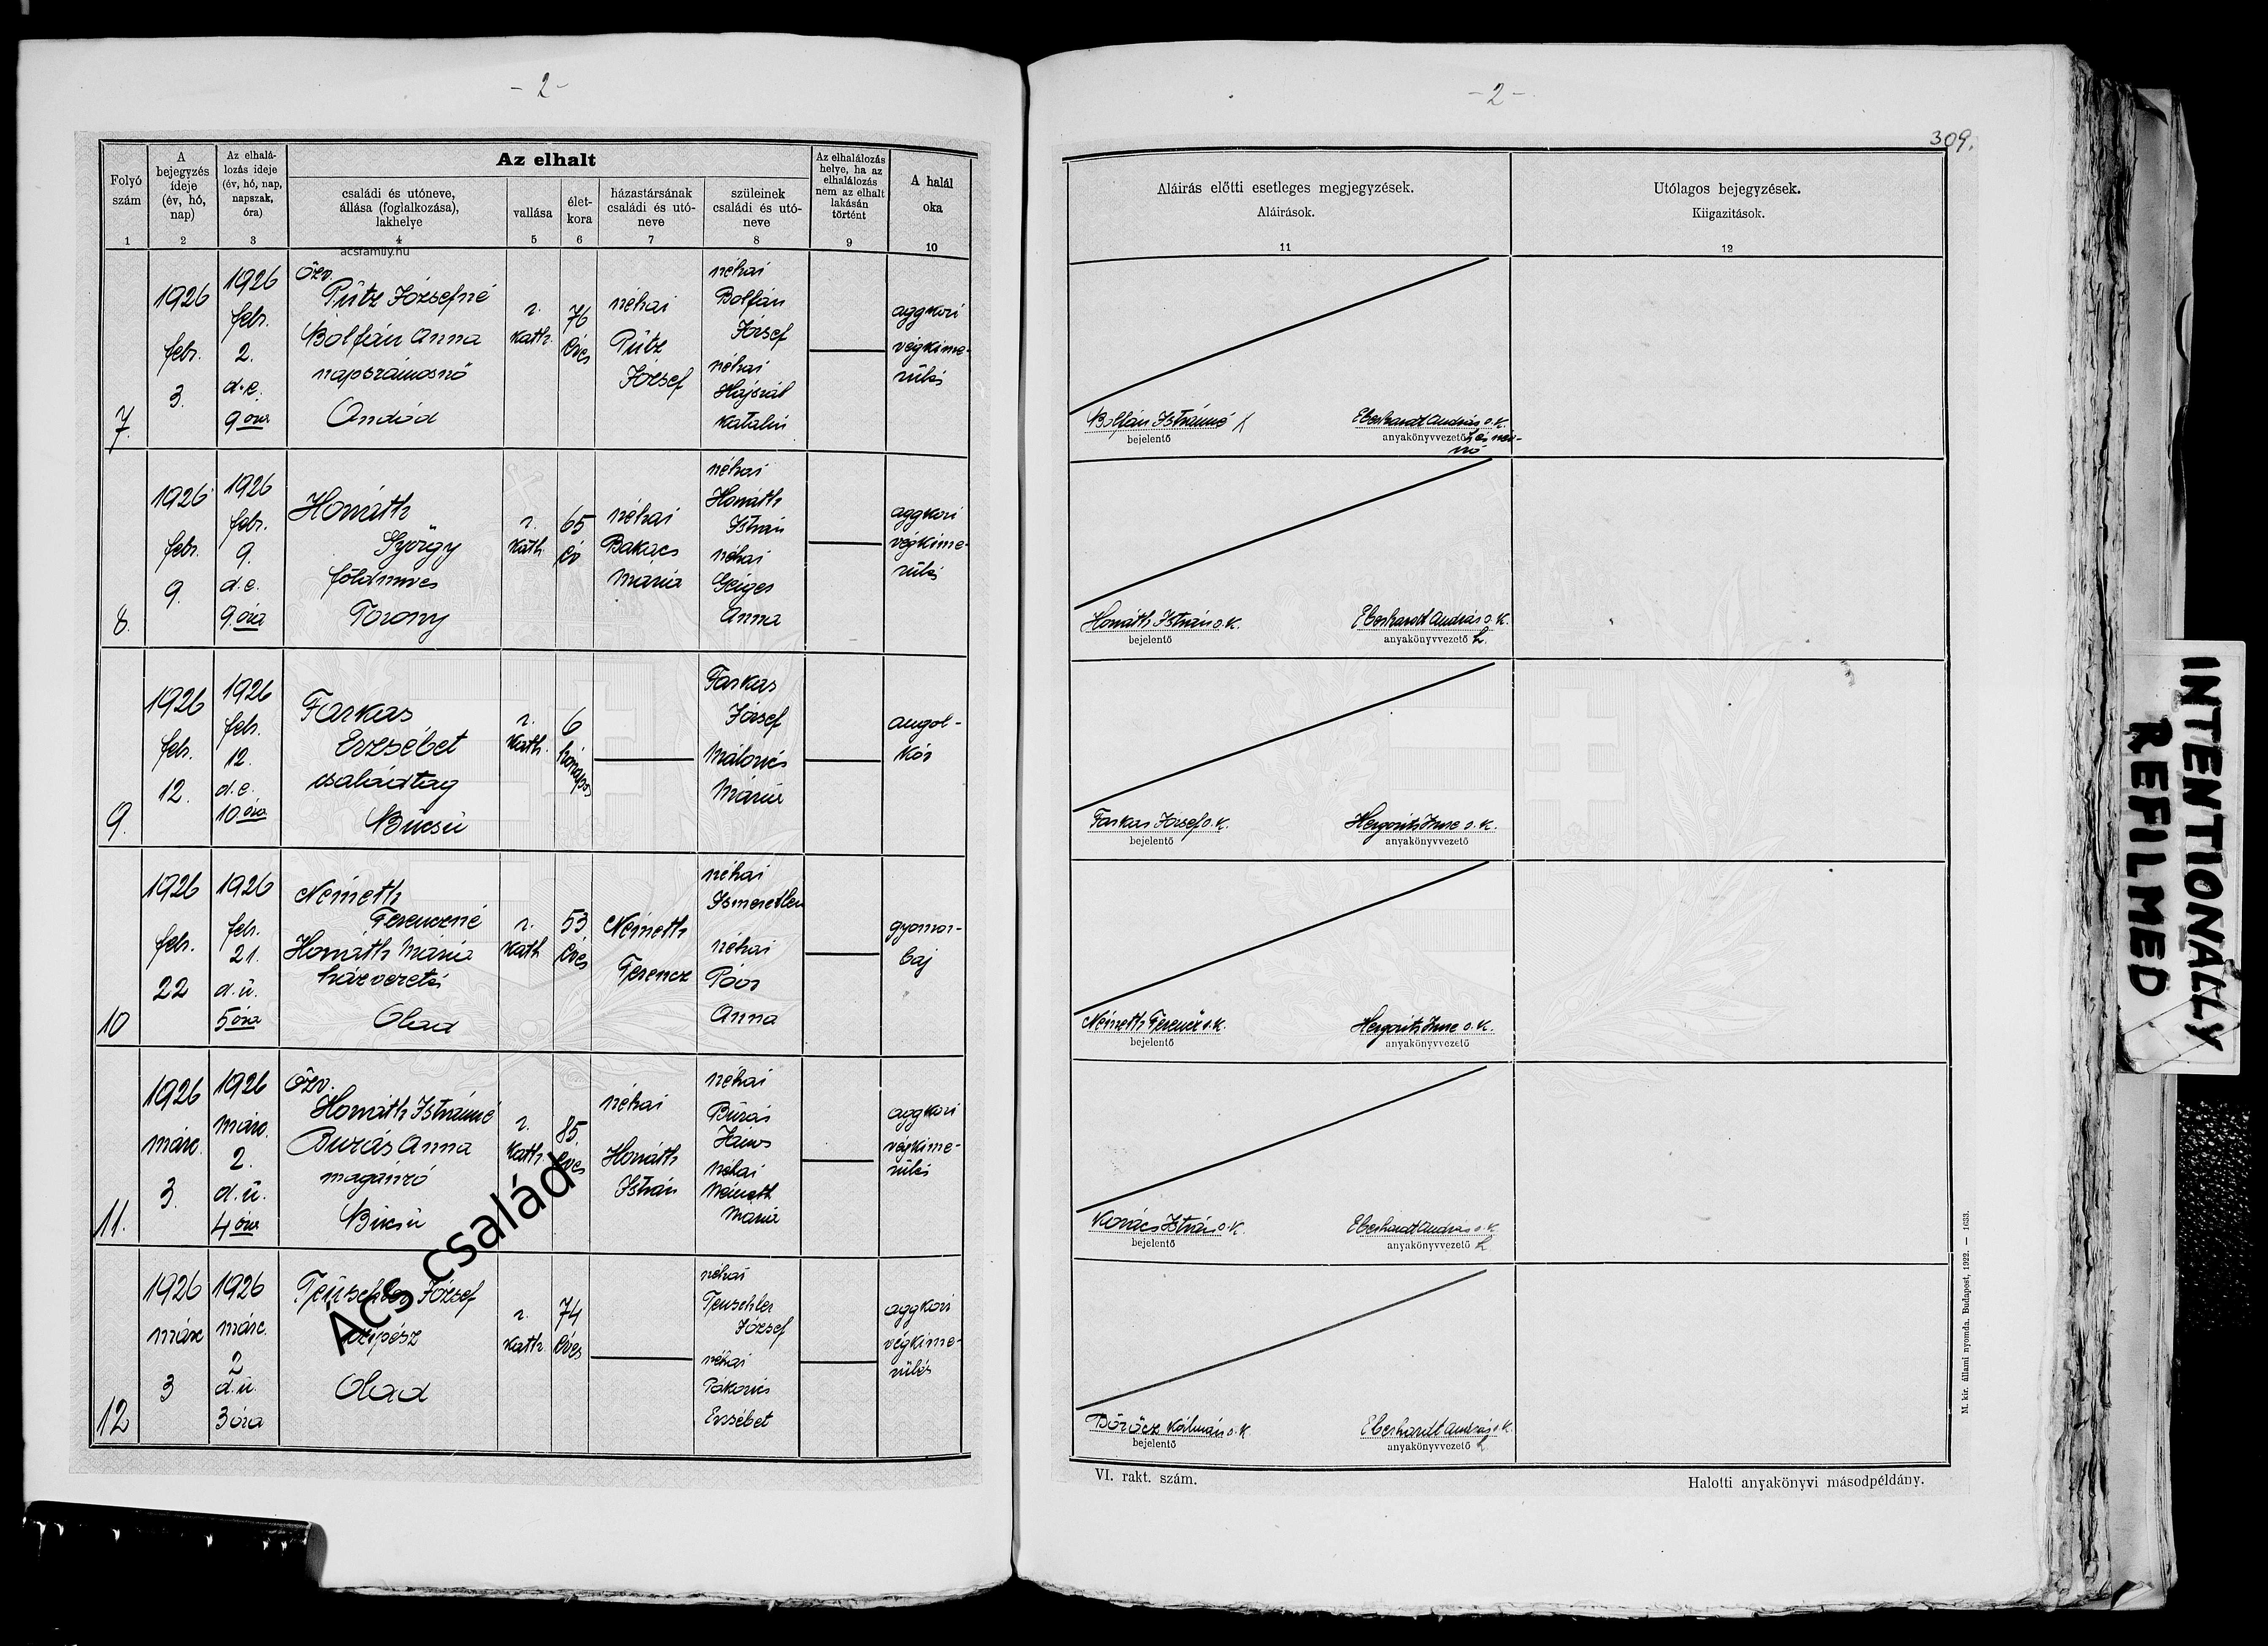 - 2 -
Folyó
szám
1
A
bejegyzés
ideje
(év, hó,
nap)
2
Az elhalá-
lozás ideje
(év, hó, nap,
napszak,
óra)
3
Az elhalt
családi és utóneve,
állása (foglalkozása),
lakhelye
4
vallása
5
élet-
kora
6
házastársának
családi és utó-
neve
7
szüleinek
családi és utó-
neve
8
Az elhalálozás
helye, ha az
elhalálozás
nem az elhalt
lakásán
történt
9
A halál
oka
10
acsfamily.hu
7.
1926
febr.
3.
1926
febr.
2.
d. e.
9 óra
özv.
Pütz Józsefné
Bolfán Anna
napszámosnő
Ondód
r.
kath.
76
éves
néhai
Pütz
József
néhai
Bolfán
József
néhai
Katalin
aggkori
végkime-
rülés
8.
1926
febr.
9.
1926
febr.
9.
d. e.
9 óra
Horváth
György
földmives
Torony
r.
kath.
65
év
néhai
Bakács
Mária
néhai
Horváth
István
néhai
Geiges
Anna
aggkori
végkime-
rülés
9.
1926
febr.
12.
1926
febr.
12.
d. e.
10 óra
Farkas
Erzsébet
családtag
Bucsu
r.
kath.
6
hónapos
Farkas
József
Málovics
Mária
angol-
kór
10
1926
febr.
22
1926
febr.
21.
d. u.
5 óra
Németh
Ferenczné
Horváth Mária
házvezető
Olad
r.
kath
53
éves
Németh
Ferencz
néhai
Ismeretlen
néhai
Póór
Anna
gyomor-
baj
11.
1926
márc.
3.
1926
márc.
2.
d. u.
4 óra
özv.
Horváth Istvánné
Buzás Anna
magánzó
Bucsu
r.
kath.
85
éves
néhai
Horváth
István
néhai
Búzás
János
néhai
Németh
Mária
aggkori
végkime-
rülés
12
1926
márc
3
1926
márc.
2
d. u.
3 óra
Teuschler József
Olad
r.
kath
74
éves
néhai
Teuschler
József
néhai
Pákovics
Erzsébet
aggkori
végkime-
rülés
Ács család
- 2 -
309.
Aláírás előtti esetleges megjegyzések.
Aláírások.
11
Utólagos bejegyzések.
Kiigazitások.
12
Bolfán Istvánné
bejelentő
Eberhardt András s. k.
anyakönyvvezető
Horváth István s. k.
bejelentő
Eberhardt András s. k.
anyakönyvvezető h.
Farkas József s. k.
bejelentő
Hergovits Imre s. k.
anyakönyvvezető
Németh Ferencz s. k.
bejelentő
Hergovits Imre s. k.
anyakönyvvezető
Kovács István s. k.
bejelentő
Eberhardt András s. k.
anyakönyvvezető h.
Döröcz Kálmán s. k.
bejelentő
Eberhardt András s. k.
anyakönyvvezető h.
VI. rakt. szám.
Halotti anyakönyvi másodpéldány.
M. kir. állami nyomda. Budapest, 1922. — 1633.
INTENTIONALLY
REFILMED